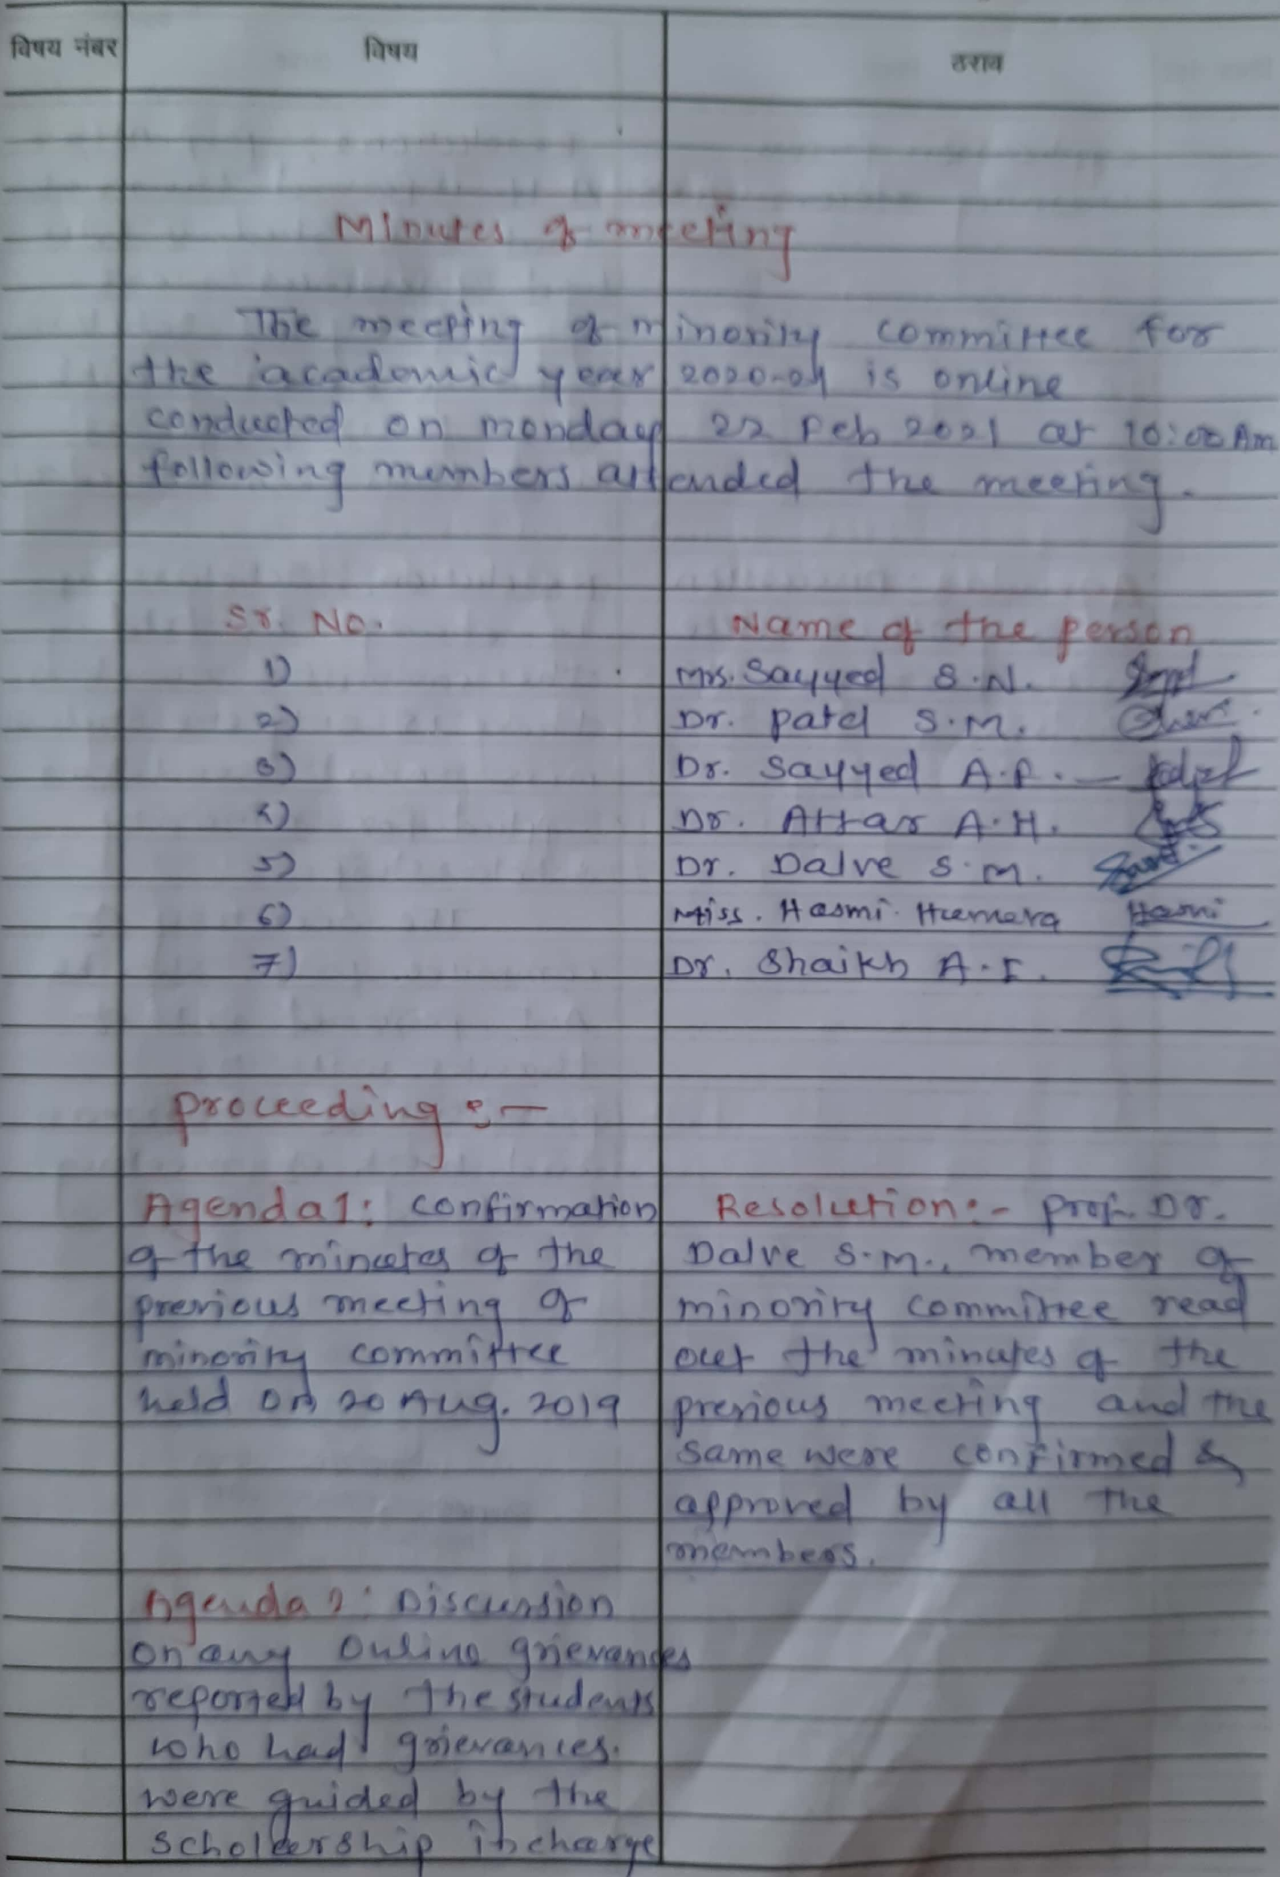 विषय नंबर विषय ठराव
Minutes of meeting
The meeting of minority committee for
the academic year 2020-21 is online
conducted on monday 22 Feb 2021 at 10:00 Am
following members attended the meeting.
Sr. No. Name of the person
1) Mrs. Sayyed S.N.
2) Dr. Patel S.M.
3) Dr. Sayyed A.R.
4) Dr. Attar A.H.
5) Dr. Dalve S.M.
6) Miss. Hasmi Humera Hasmi
7) Dr. Shaikh A.I.
Proceeding :-
Agenda 1: Confirmation
of the minutes of the
previous meeting of
minority committee
held on 20 Aug. 2019
Resolution:- Prof. Dr.
Dalve S.M., member of
minority committee read
out the minutes of the
previous meeting and the
same were confirmed &
approved by all the
members.
Agenda 2: Discussion
on any Online grievances
reported by the students
who had grievances.
were guided by the
Scholarship incharge